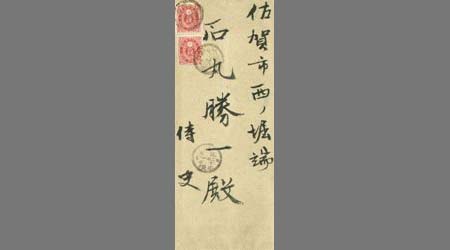 佐賀市西ノ堀端
石丸勝一殿
侍史